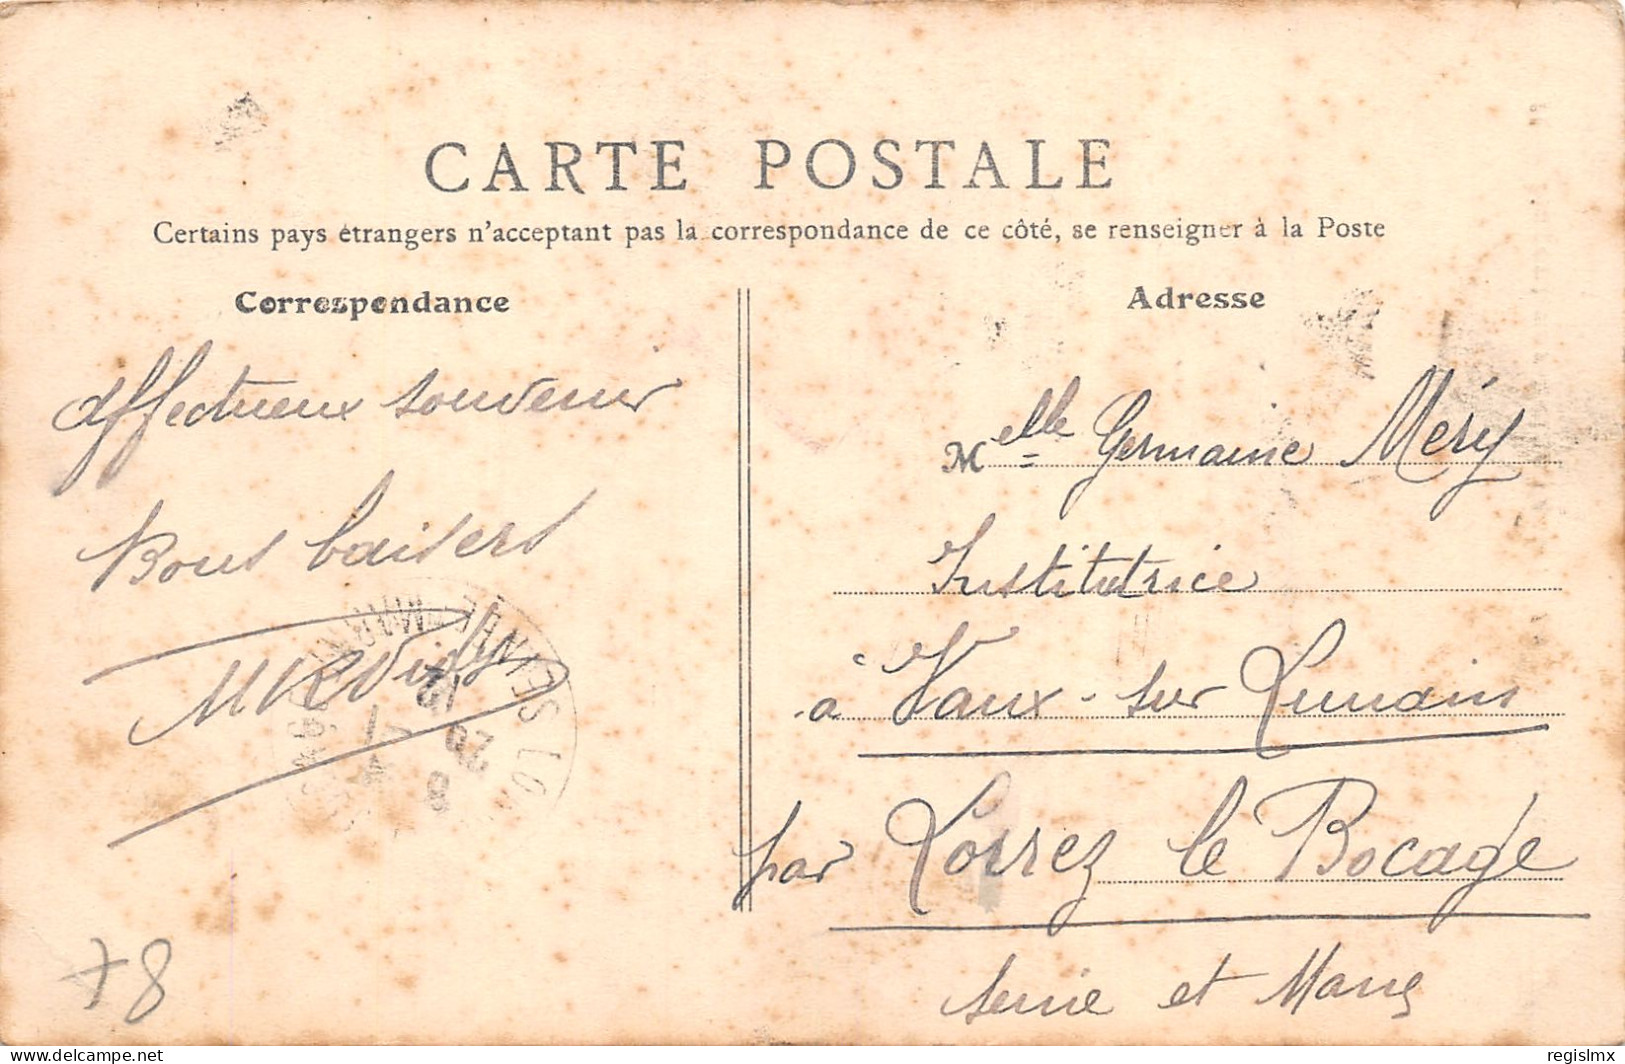 CARTE POSTALE
Certains pays étrangers n'acceptant pas la correspondance de ce côté, se renseigner à la Poste
Correspondance
Affectueux souvenir
Bons baisers
Adresse
Melle Germaine Méry
Institutrice
à Vaux-sur Lunain
par Lorrez le Bocage
Seine et Marne
78
delcampe.net
regislmx